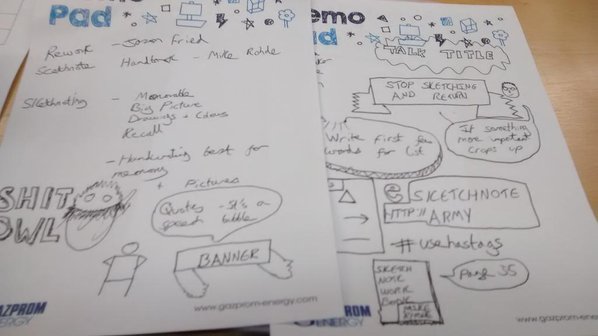 Pad
Rework - Jason Fried
Scetchnote Handbook - Mike Rohde
Sketchnoting - Memorable
Big Picture
Drawings + Ideas
Recall
- Handwriting best for memory
+ Pictures
SHIT
OWL
Quotes - Stick on
speech bubble
BANNER
GAZPROM
ENERGY
www.gazprom-energy.com
emo
ad
TALK TITLE
STOP SKETCHING
AND RETURN
If something
more important
crops up
Write first few
words for list
e SKETCHNOTE
HTTP:// ARMY
#usehastags
SKETCH
NOTE
WORK
BOOK
MIKE
ROHDE
Page 35
PROM
ENERGY
www.gazprom-ene